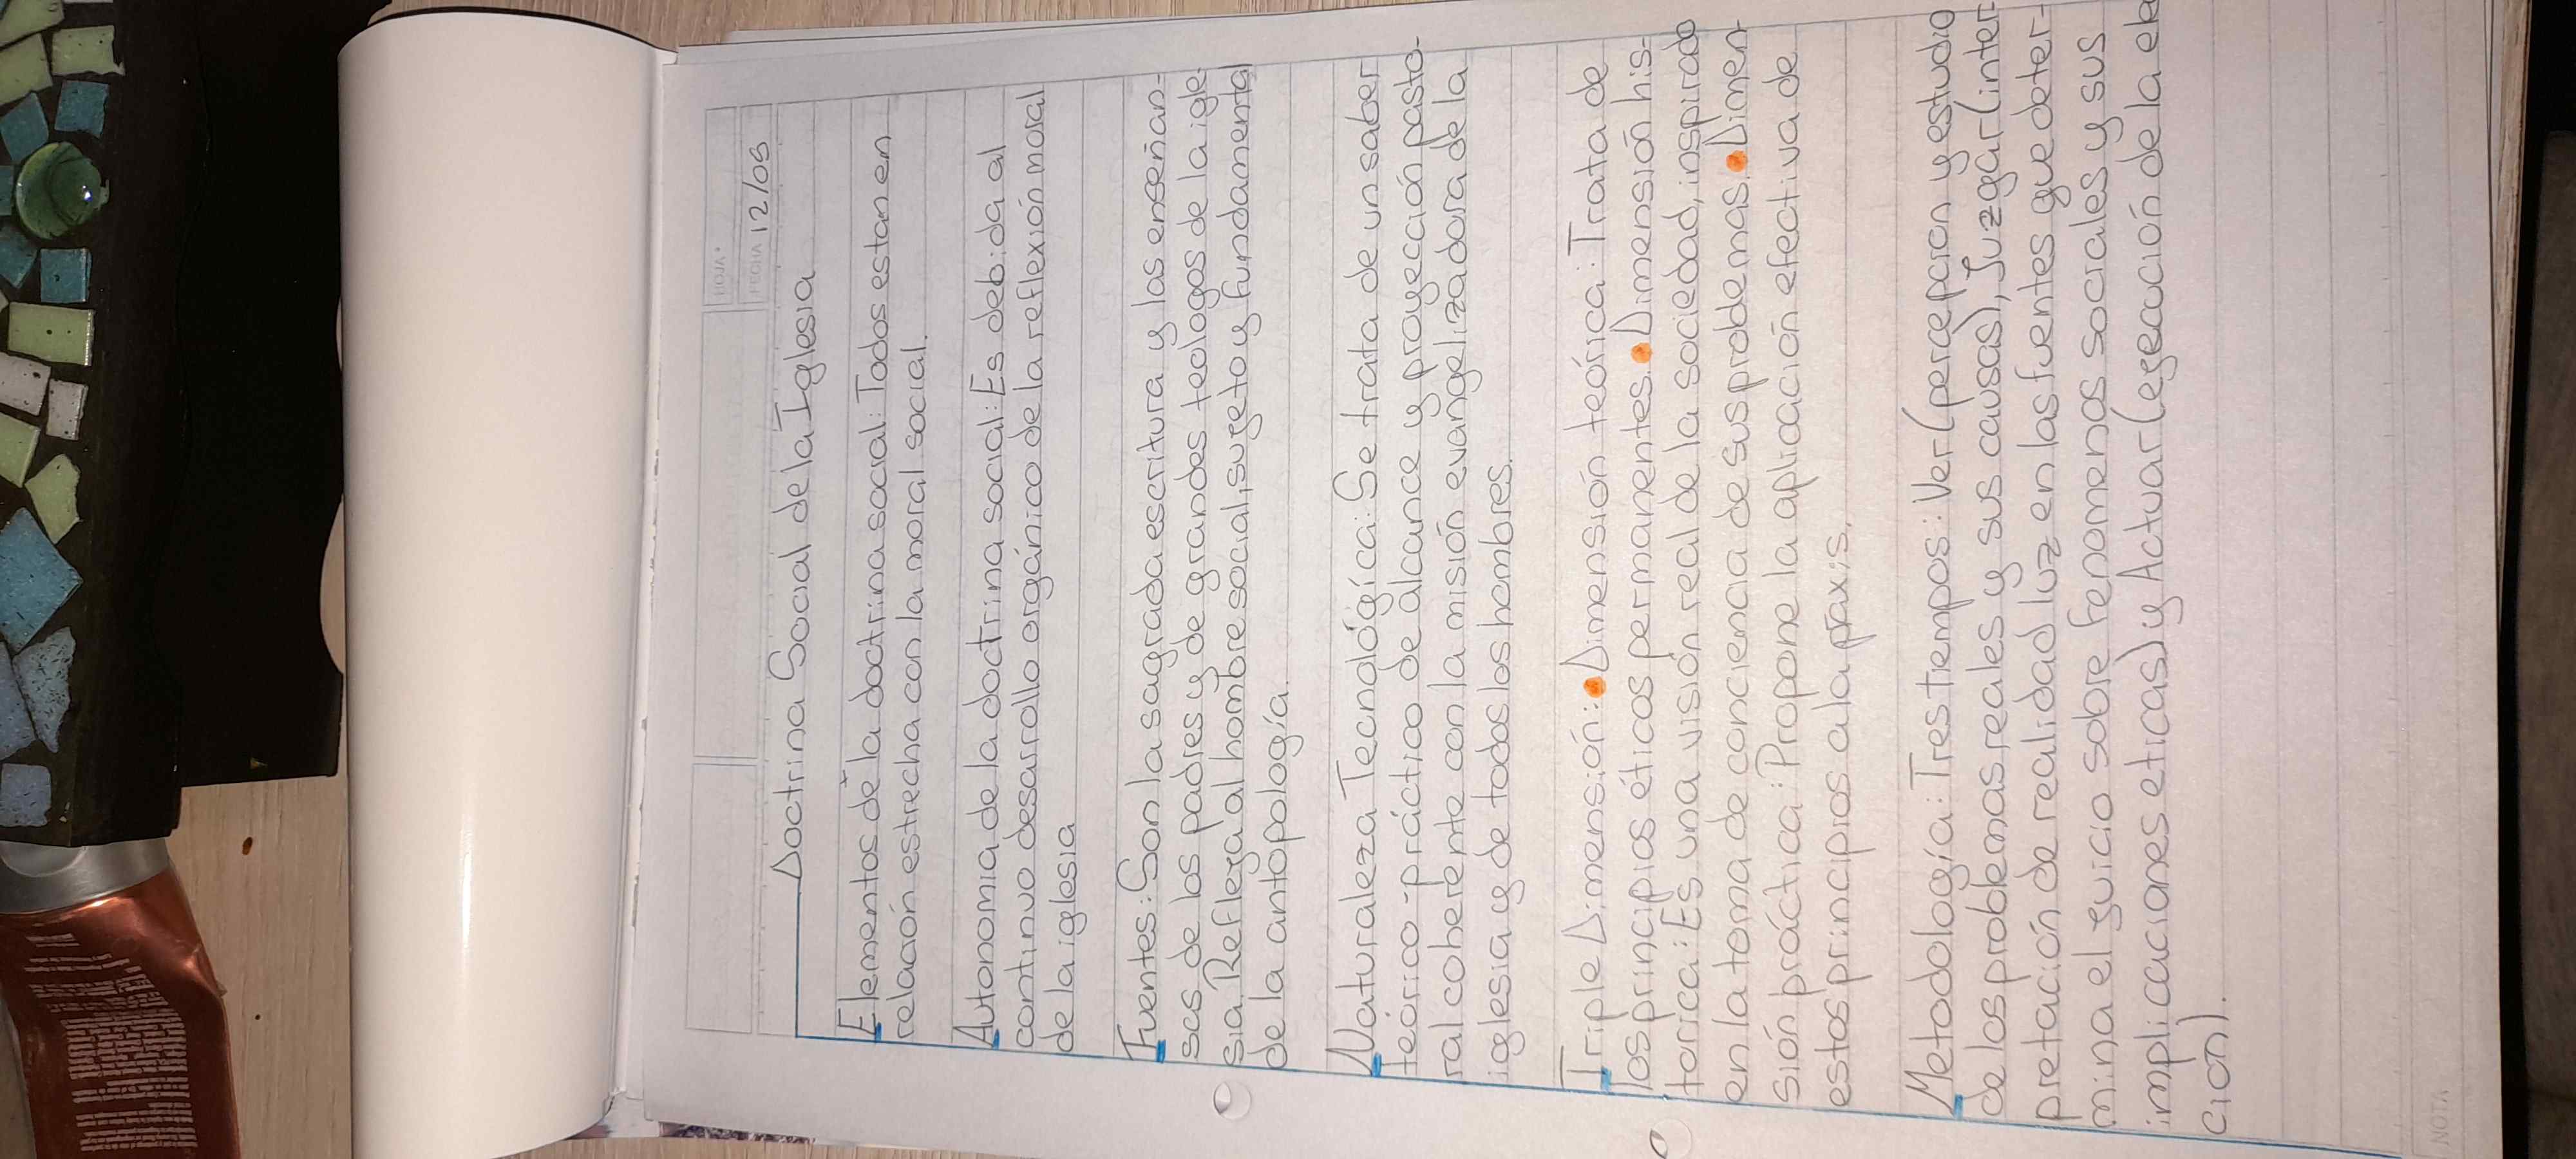 HOJA°
FECHA 12/05
Doctrina Social de la Iglesia
Elementos de la doctrina social: Todos estan en
relación estrecha con la moral social.
Autonomia de la doctrina social: Es debida al
continuo desarrollo orgánico de la reflexión moral
de la iglesia
Fuentes: Son la sagrada escritura y las enseñan-
scs de los padres y de grandes teologos de la igle-
sia. Refleja al hombre social, sujeto y fundamental
de la antopología.
Naturaleza Tecnológica: Se trata de un saber
teórico-práctico de alcance y proyección pasto-
ral coherente con la misión evangelizadora de la
iglesia y de todos los hombres.
Triple Dimensión: • Dimensión teórica: Trata de
los principios éticos permanentes. • Dimensión his-
torica: Es una visión real de la sociedad, inspirado
en la toma de conciencia de sus problemas. • Dimen-
sión práctica: Propone la aplicación efectiva de
estos principios a la práxis.
Metodología: Tres tiempos: Ver (percepcion y estudio
de los problemas reales y sus causas), Juzgar (inter
pretación de realidad luz en las fuentes que deter-
mina el juicio sobre fenomenos sociales y sus
implicaciones eticas) y Actuar (ejecución de la ele
ción).
NOTA